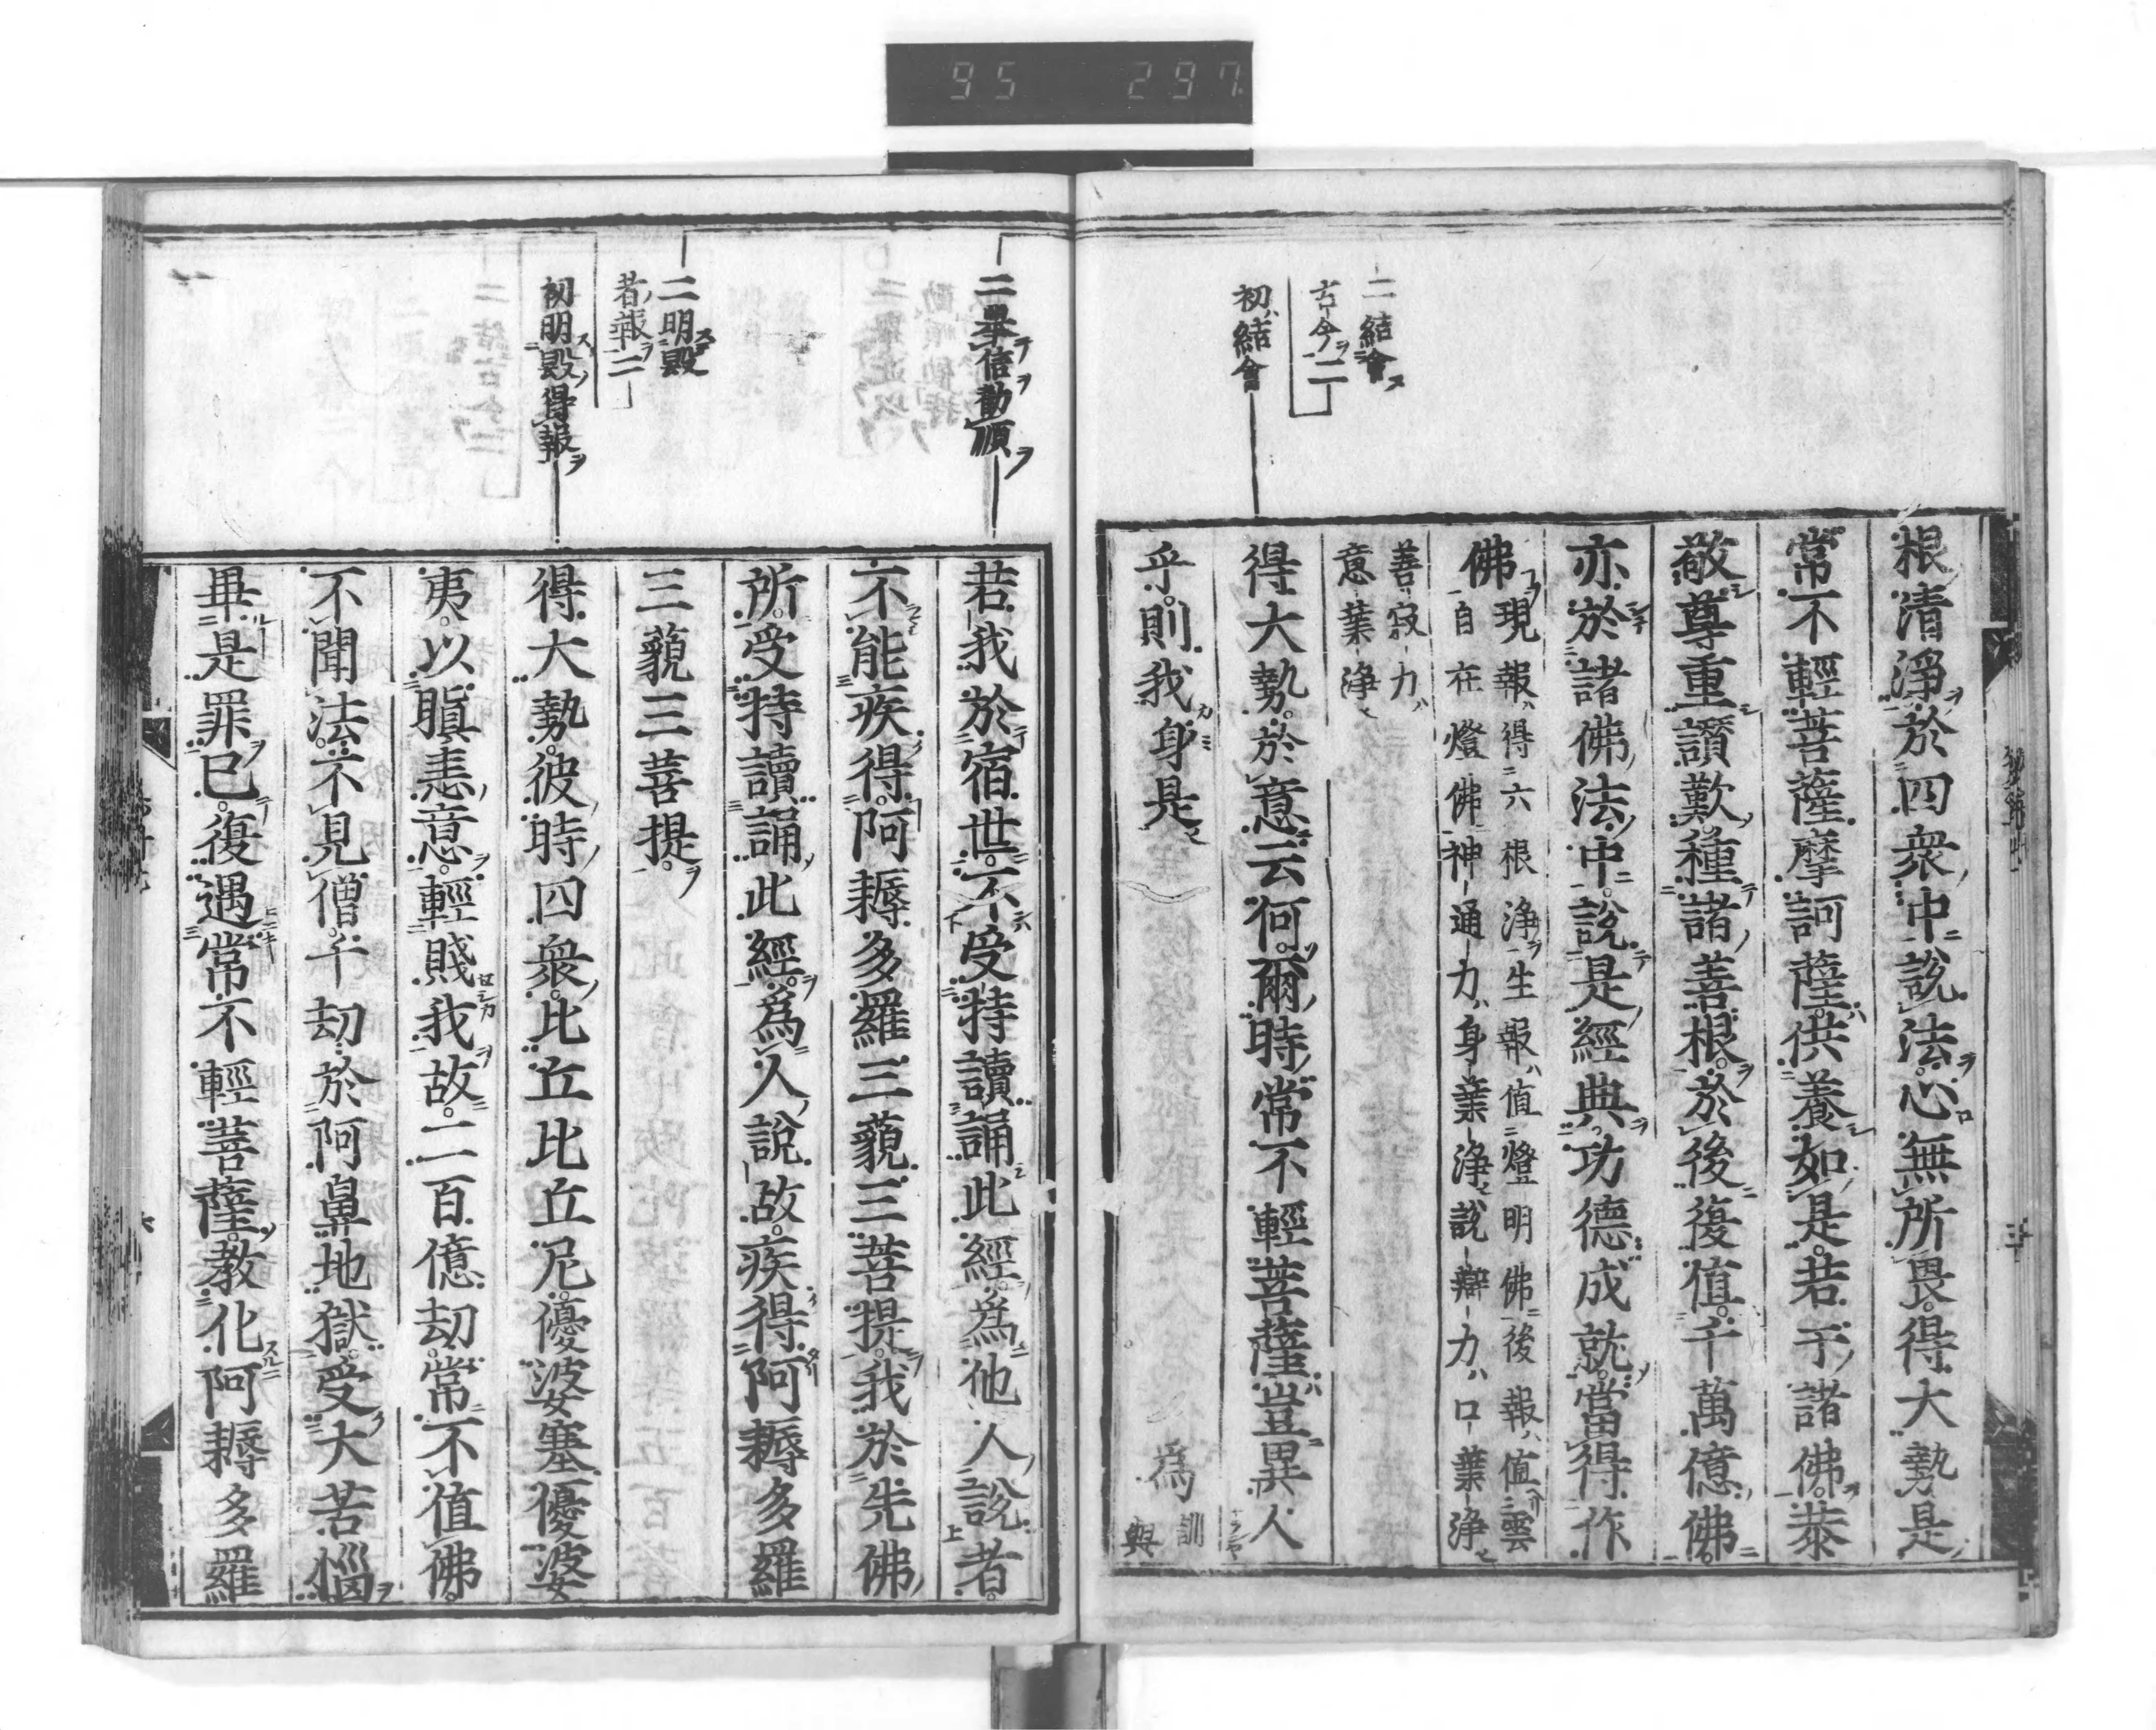 95 297
二結會
古今二
初結會
根清淨於四衆中說法心無所畏得大勢是
常不輕菩薩摩訶薩供養如是若干諸佛恭
敬尊重讚歎種諸善根於後復值千萬億佛
亦於諸佛法中說是經典功德成就當得作
佛
現報得六根淨生報值燈明佛後報值雲
自在燈佛神通力身業淨說辯力口業淨
善寂力
意業淨
得大勢於意云何爾時常不輕菩薩豈異人
乎則我身是
爲
訓
與
二舉信勸順
二明毀
者報二
初明毀得報
若我於宿世不受持讀誦此經爲他人說者
不能疾得阿耨多羅三藐三菩提我於先佛
所受持讀誦此經爲人說故疾得阿耨多羅
三藐三菩提
得大勢彼時四衆比丘比丘尼優婆塞優婆
夷以瞋恚意輕賤我故二百億劫常不值佛
不聞法不見僧千劫於阿鼻地獄受大苦惱
畢是罪已復遇常不輕菩薩教化阿耨多羅